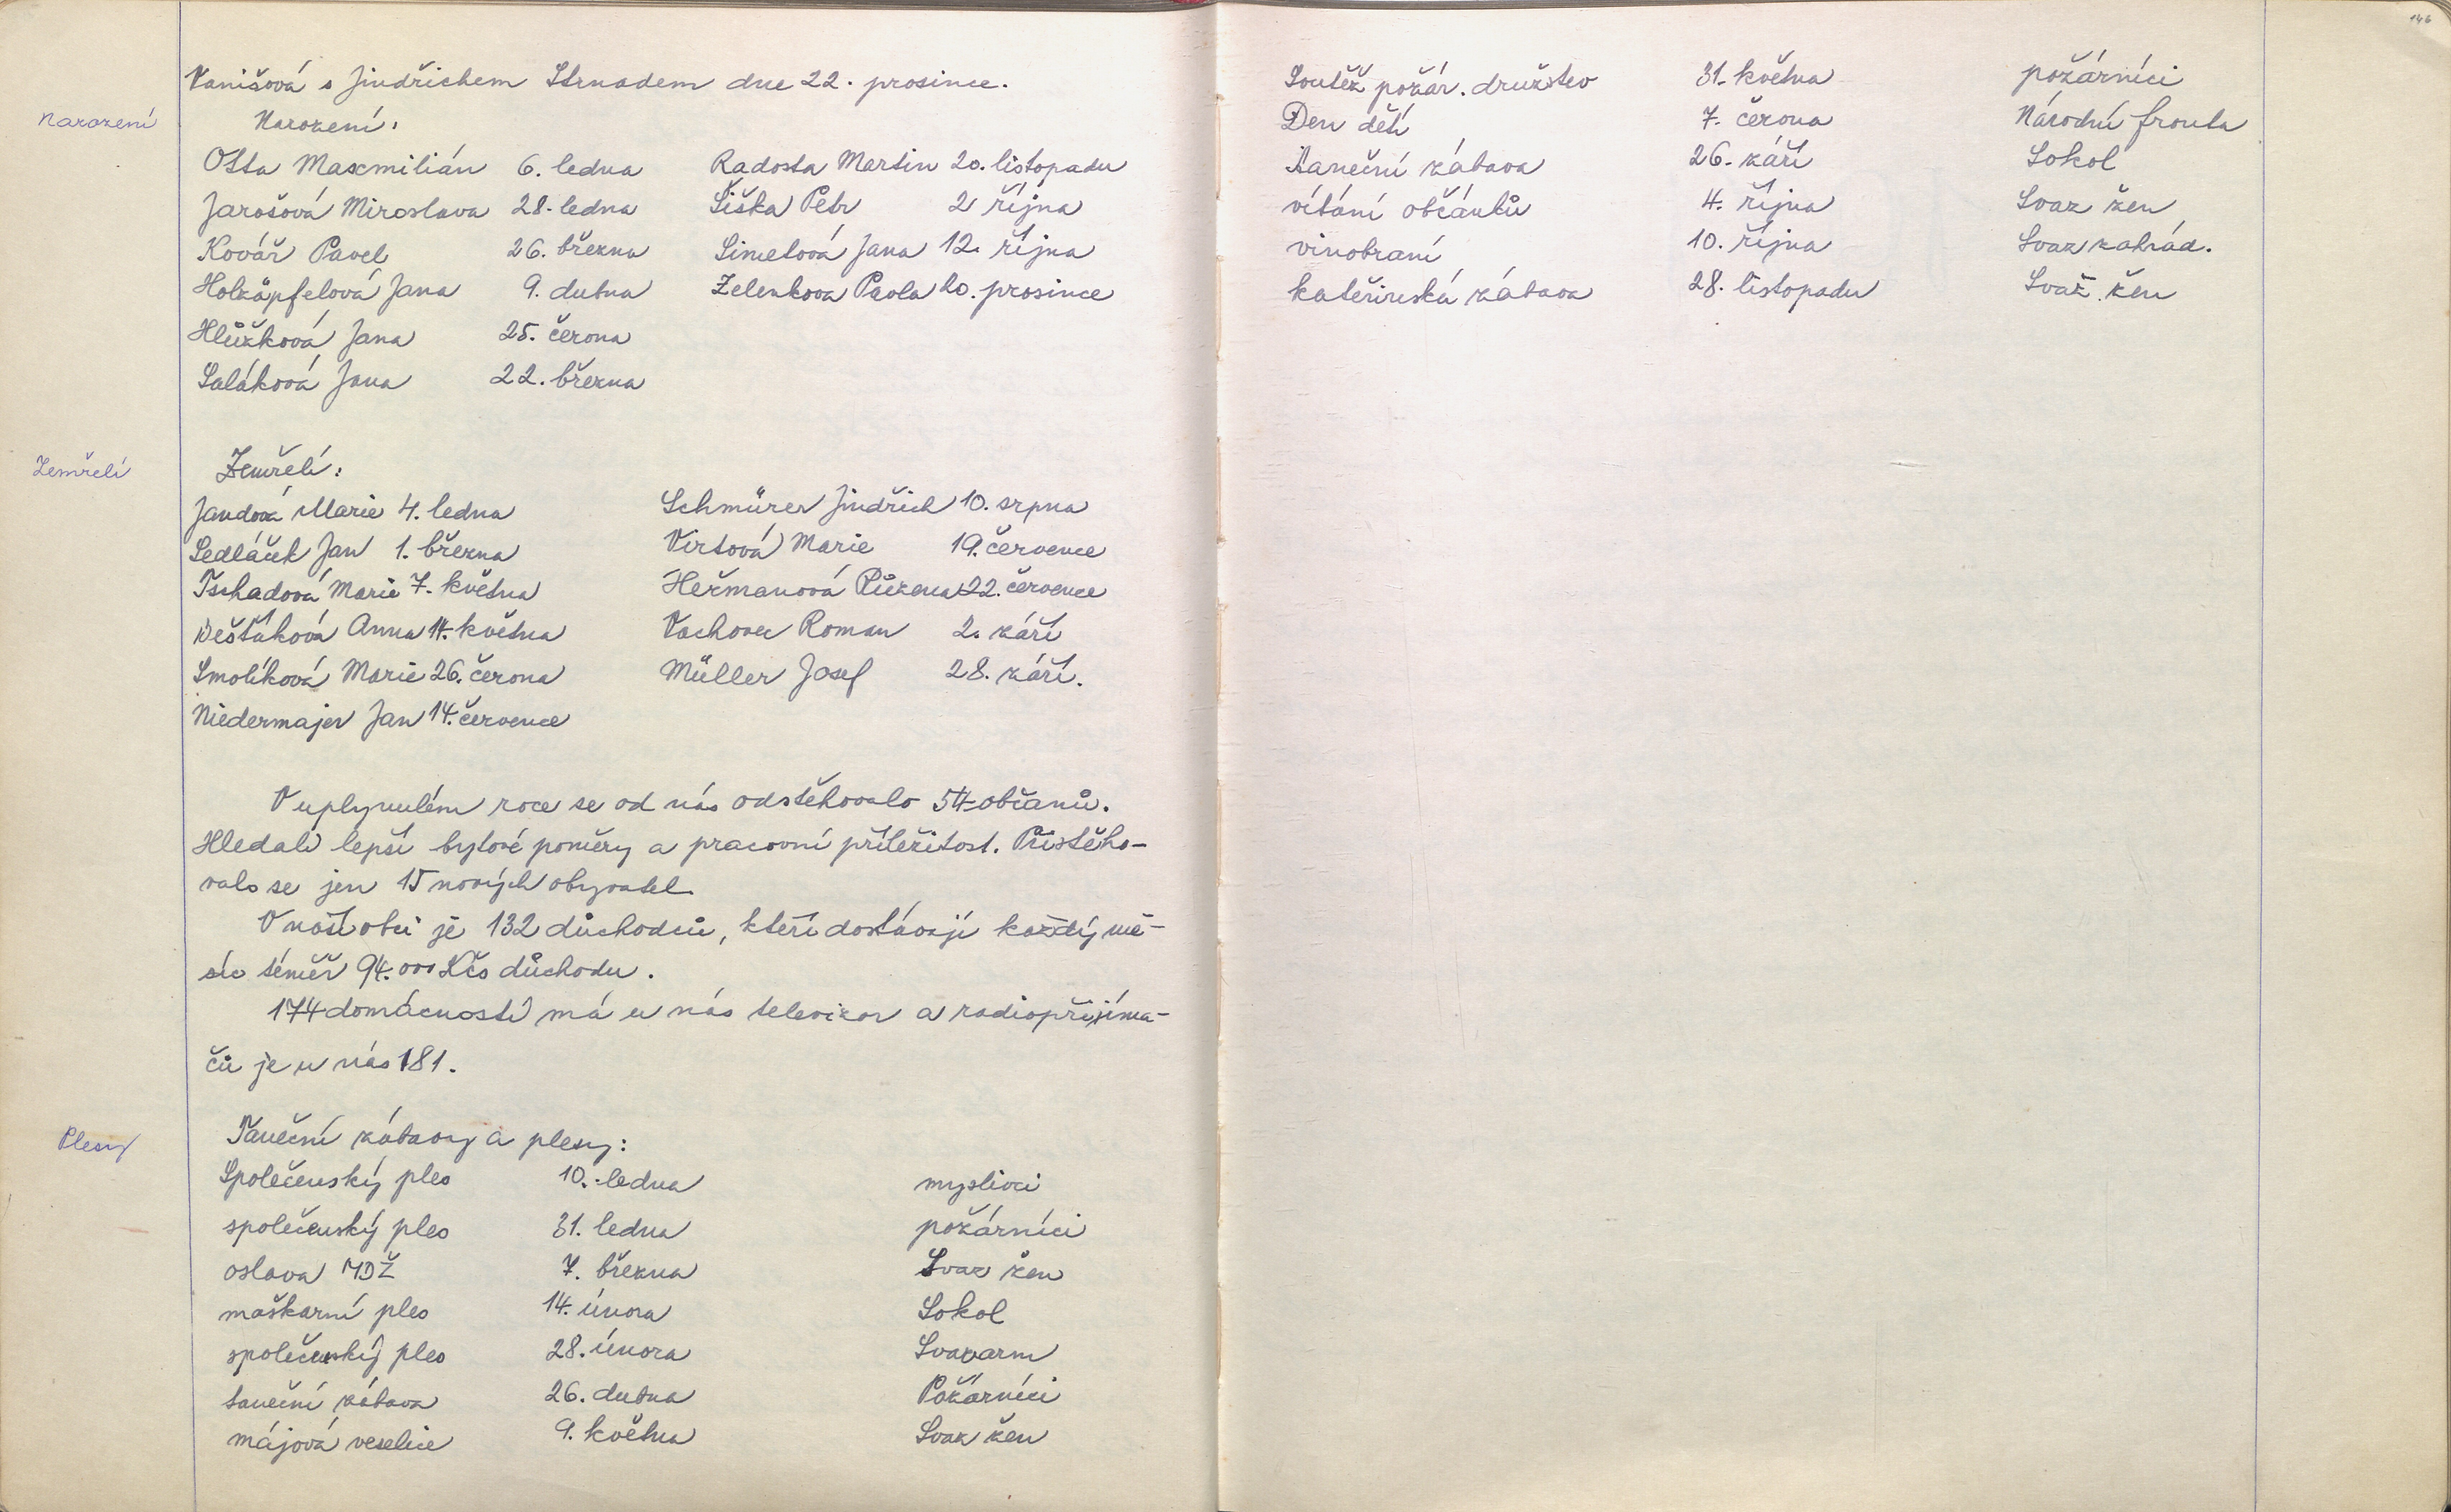 Vanišová s Jindřichem Strnadem dne 22. prosince.
Narození
Narození:
Otta Maxmilián 6. ledna Radosta Martin 20. listopadu
Jarošová Miroslava 28. ledna Šiška Petr 2 října
Kovář Pavel 26. března Simetová Jana 12. října
Holzäpfelová Jana 9. dubna Zelenkova Pavla 20. prosince
Hlůžková Jana 25. června
Saláková Jana 22. března
Zemřelí
Zemřelí:
Jandová Marie 4. ledna Schmürer Jindřich 10. srpna
Sedláček Jan 1. března Virtová Marie 19. července
Tschadová Marie 7. května Heřmanová Růžena 22. července
Dešťáková Anna 14. května Vachovec Roman 2. září
Smolíková Marie 26. června Müller Josef 28. září.
Niedermajer Jan 14. července
V uplynulém roce se od nás odstěhovalo 54 občanů.
Hledali lepší bytové poměry a pracovní příležitost. Přistěho-
valo se jen 15 nových obyvatel.
V naší obci je 132 důchodců, kteří dostávají každý mě-
síc téměř 94.000 Kčs důchodu.
174 domácností má u nás televizor a radiopřijíma-
čů je u nás 181.
Plesy
Taneční zábavy a plesy:
Společenský ples 10. ledna myslivci
společenský ples 31. ledna požárníci
oslava MDŽ 7. března Svaz žen
maškarní ples 14. února Sokol
společenský ples 28. února Svazarm
taneční zábava 26. dubna Požárníci
májová veselice 9. května Svaz žen
146
Soutěž požár. družstev 31. května požárníci
Den dětí 7. června Národní fronta
Taneční zábava 26. září Sokol
vítání občánků 4. října Svaz žen
vinobraní 10. října Svaz zahrád.
kateřinská zábava 28. listopadu Svaz žen